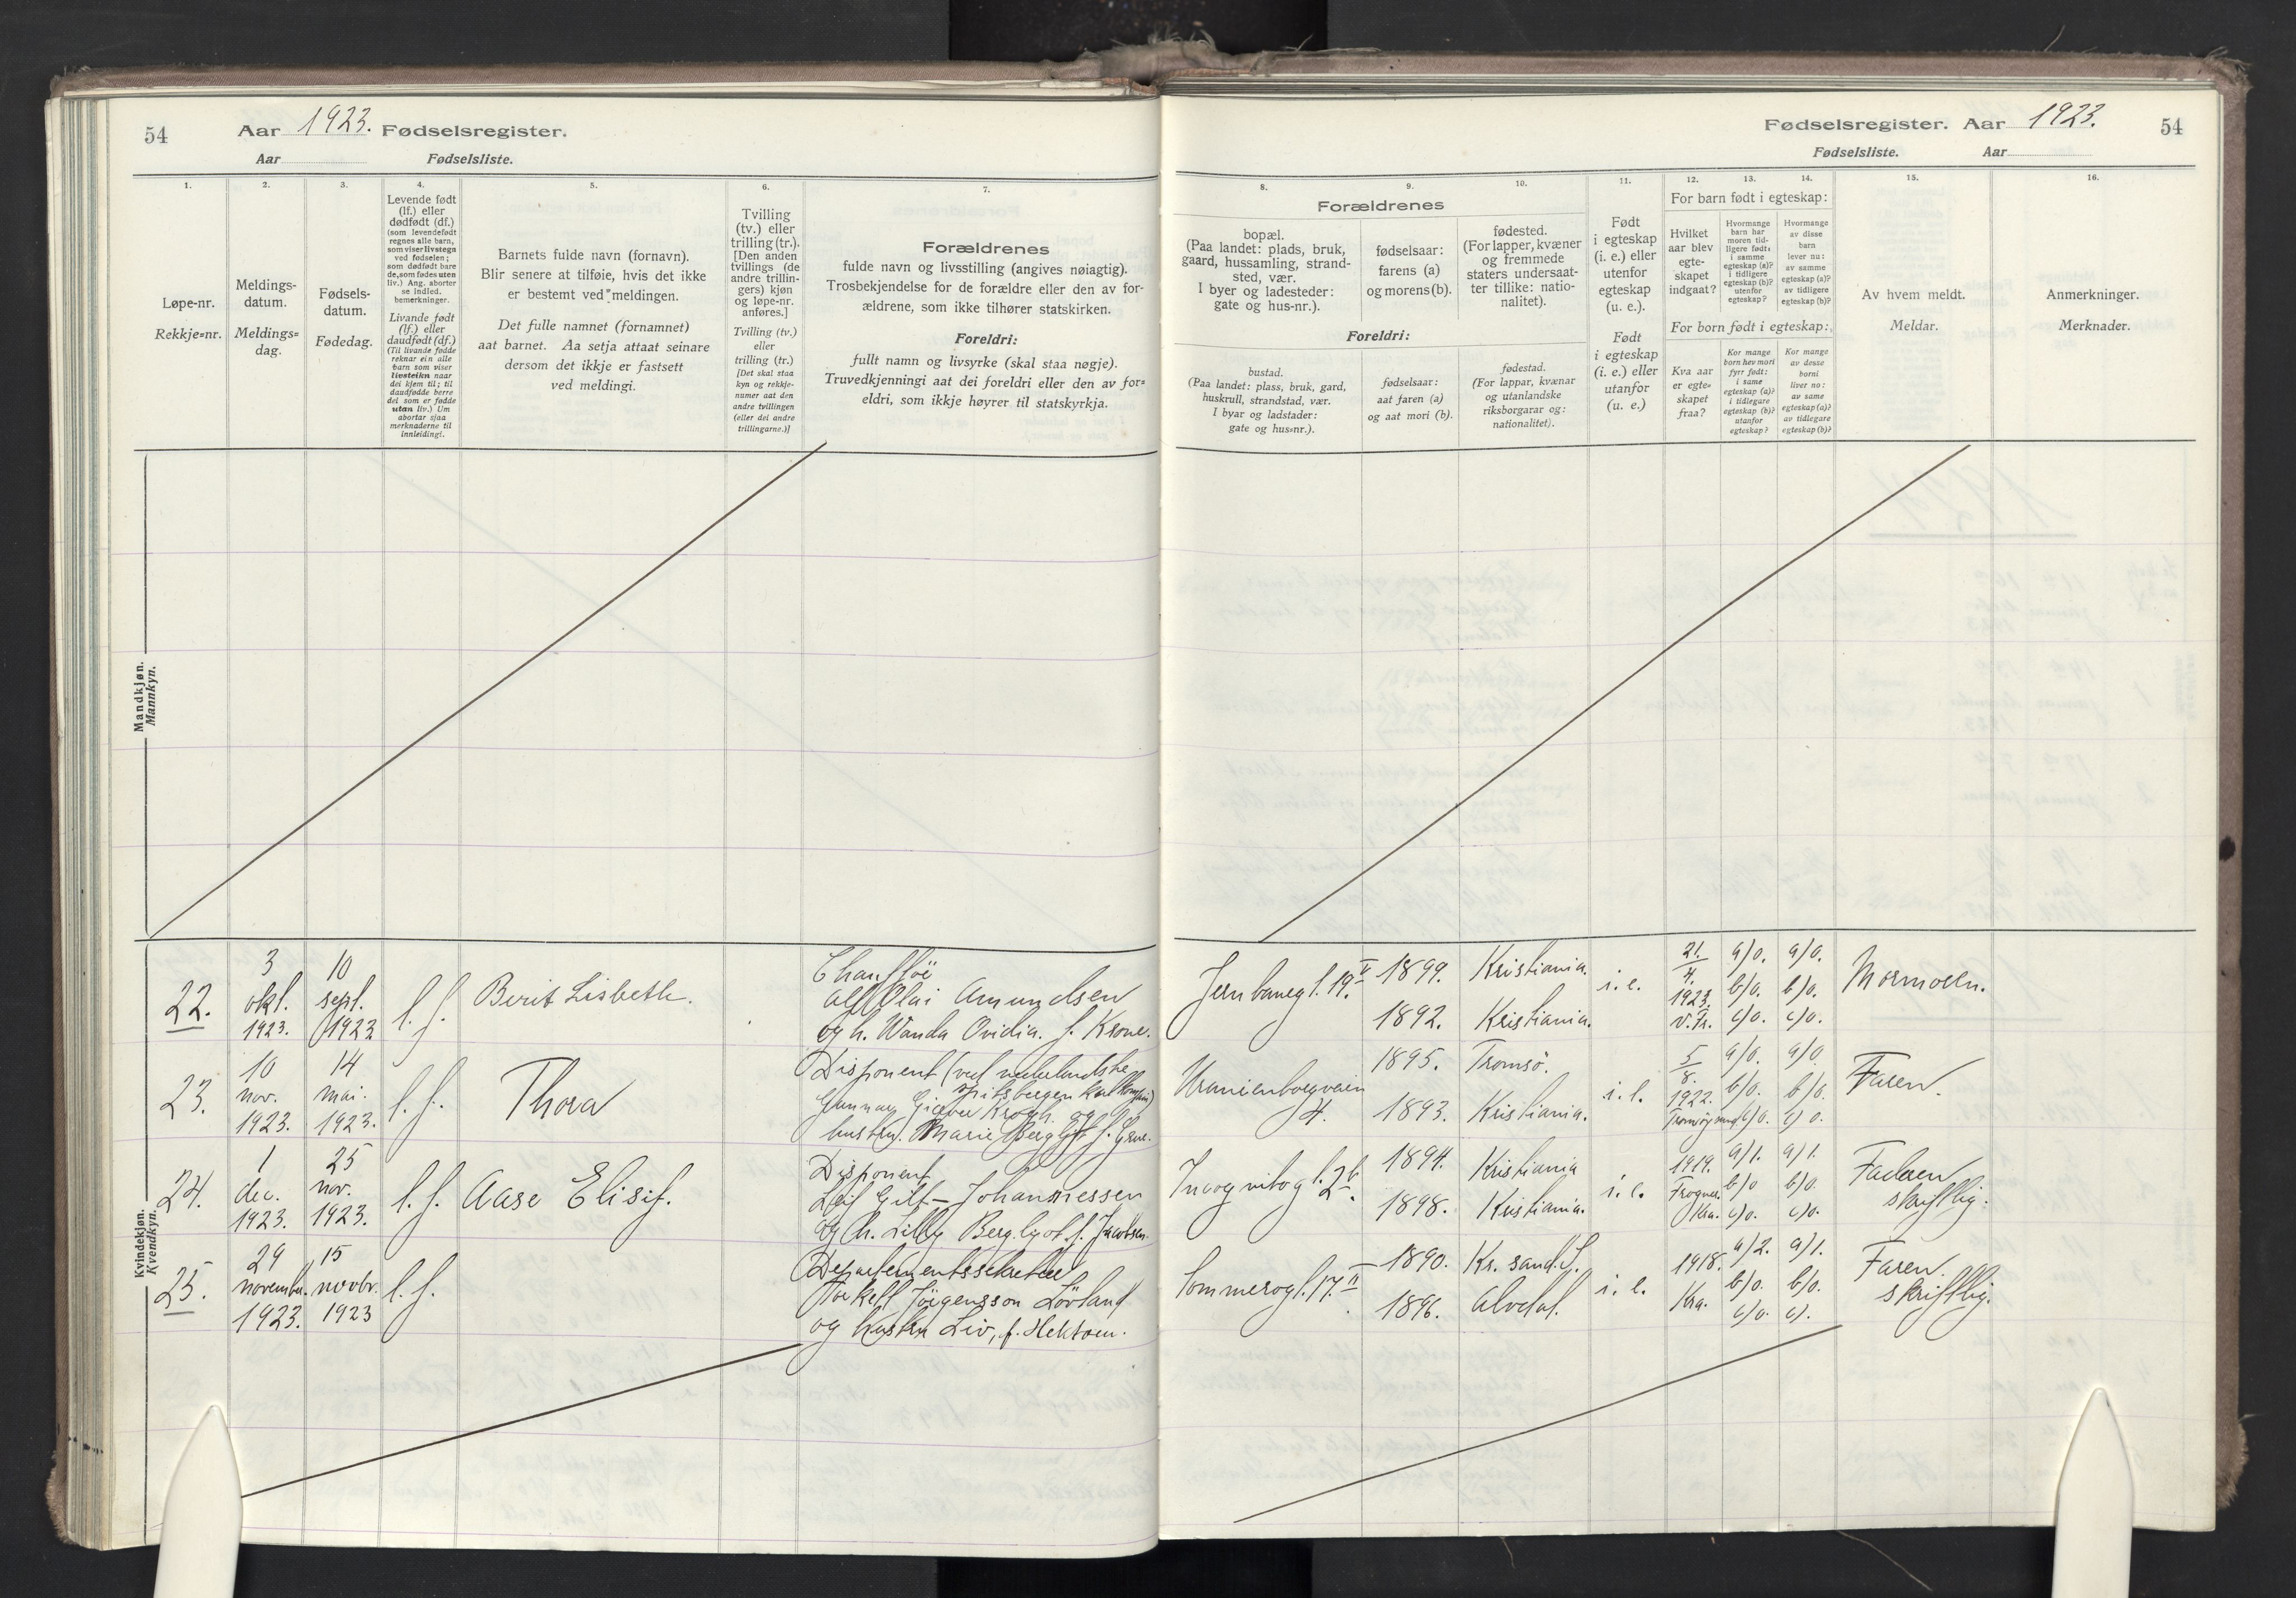 54
Aar 1923. Fødselsregister.
Aar
Fødselsliste.
1.
2.
3.
4.
5.
6.
7.
Løpe-nr.
Rekkje=nr.
Meldings-
datum.
Meldings=
dag.
Fødsels-
datum.
Fødedag.
Levende født
(lf.) eller
dødfødt (df.)
(som levendefødt
regnes alle barn,
som viser livstegn
ved fødselen;
som dødfødt bare
de, som fødes uten
liv.) Ang. aborter
se indled.
bemerkninger.
Livande født
(lf.) eller
daudfødt (df.)
(Til livande fødde
reknar ein alle
barn som viser
livsteikn naar
dei kjem til; til
daudfødde berre
dei som er fødde
utan liv.) Um
abortar sjaa
merknaderne til
innleidingi.
Barnets fulde navn (fornavn).
Blir senere at tilføie, hvis det ikke
er bestemt ved meldingen.
Det fulle namnet (fornamnet)
aat barnet. Aa setja attaat seinare
dersom det ikkje er fastsett
ved meldingi.
Tvilling
(tv.) eller
trilling (tr.).
[Den anden
tvillings (de
andre trillin-
gers) kjøn
og løpe-nr.
anføres.]
Tvilling (tv.)
eller
trilling (tr.)
[Det skal staa
kyn og rekkje-
numer aat den
andre tvillingen
(eller dei andre
trillingarne.)]
Forældrenes
fulde navn og livsstilling (angives nøiagtig).
Trosbekjendelse for de forældre eller den av for-
ældrene, som ikke tilhører statskirken.
Foreldri:
fullt namn og livsyrke (skal staa nøgje).
Truvedkjenningi aat dei foreldri eller den av for=
eldri, som ikkje høyrer til statskyrkja.
Mandkjøn.
Mannkyn.
Kvindekjøn.
Kvendkyn.
22.
3
okt.
1923.
10
sept.
1923
l. f.
Berit Lisbeth.
Chauffør
Alf Olai Amundsen
og h. Wanda Ovidia. f. Krone.
23.
10
nov.
1923.
14
mai.
1923.
l. f.
Thora
Disponent (ved nederlandske
spitsbergen kul kompani)
Gunnar Giæver Krogh. og
hustru. Marie Bergljot f.
24.
1
dec.
1923.
25
nov.
1923.
l. f.
Aase Elisif.
Disponent
Leif Gill - Johannessen
og h. Lilly Bergljot f. Jacobsen.
25.
29
november.
1923.
15
novbr.
1923
l. f.
Departementssekretær
Torkell Jörgensson Lövland
og hustru Liv, f. Hektoen.
Fødselsregister. Aar 1923.
54
Fødselsliste.
Aar
8.
9.
10.
11.
12.
13.
14.
15.
16.
Forældrenes
bopæl.
(Paa landet: plads, bruk,
gaard, hussamling, strand-
sted, vær.
I byer og ladesteder:
gate og hus-nr.).
fødselsaar:
farens (a)
og morens (b).
fødested.
(For lapper, kvæner
og fremmede
staters undersaat-
ter tillike: natio-
nalitet).
Foreldri:
bustad.
(Paa landet: plass, bruk, gard,
huskrull, strandstad, vær.
I byar og ladstader:
gate og hus=nr.).
fødselsaar:
aat faren (a)
og aat mori (b).
fødestad.
(For lappar, kvænar
og utanlandske
riksborgarar og:
nationalitet).
Født
i egteskap
(i. e.) eller
utenfor
egteskap
(u. e.).
Født
i egteskap
(i. e.) eller
utanfor
(u. e.)
For barn født i egteskap:
Hvilket
aar blev
egte-
skapet
indgaat?
Hvormange
barn har
moren tid-
ligere født:
i samme
egteskap (a)?
i tidligere
egteskap (b)?
utenfor
egteskap?
Hvormange
av disse
barn
lever nu:
av samme
egteskap (a)?
av tidligere
egteskap (b)?
For born født i egteskap:
Kva aar
er egte=
skapet
fraa?
Kor mange
born hev mori
fyrr født:
i same
egteskap (a)?
i tidlegare
egteskap (b)?
utanfor
egteskap?
Kor mange
av desse
borni
liver no:
av same
egteskap (a)?
av tidlegare
egteskap (b)?
Av hvem meldt.
Meldar.
Anmerkninger.
Merknader.
Jernbaneg t. 19. V
1899.
1892.
Kristiania.
Kristiania.
i. e.
21.
4.
1923.
v. Fr.
a) 0.
b) 0.
c) 0.
a) 0.
b) 0.
c) 0.
Mormoren.
Uranienborgveien
4.
1895.
1893.
Tromsö.
Kristiania.
i. e.
5
8.
1922.
Tromsöysund
a) 0.
b) 0.
c) 0.
a) 0.
b) 0.
c) 0.
Faren.
Incognitog t. 2 b.
1894.
1898.
Kristiania
Kristiania.
i. e.
1919.
Frogner
Kra.
a) 1.
b) 0
c) 0.
a) 1.
b) 0.
c) 0.
Faderen
skriftlig.
Sommerog t. 17. II
1890.
1896.
Kr. sand. S.
Alvdal.
i. e.
1918.
Kra.
a) 2.
b) 0.
c) 0.
a) 1.
b) 0.
c).
Faren
skriftlig.